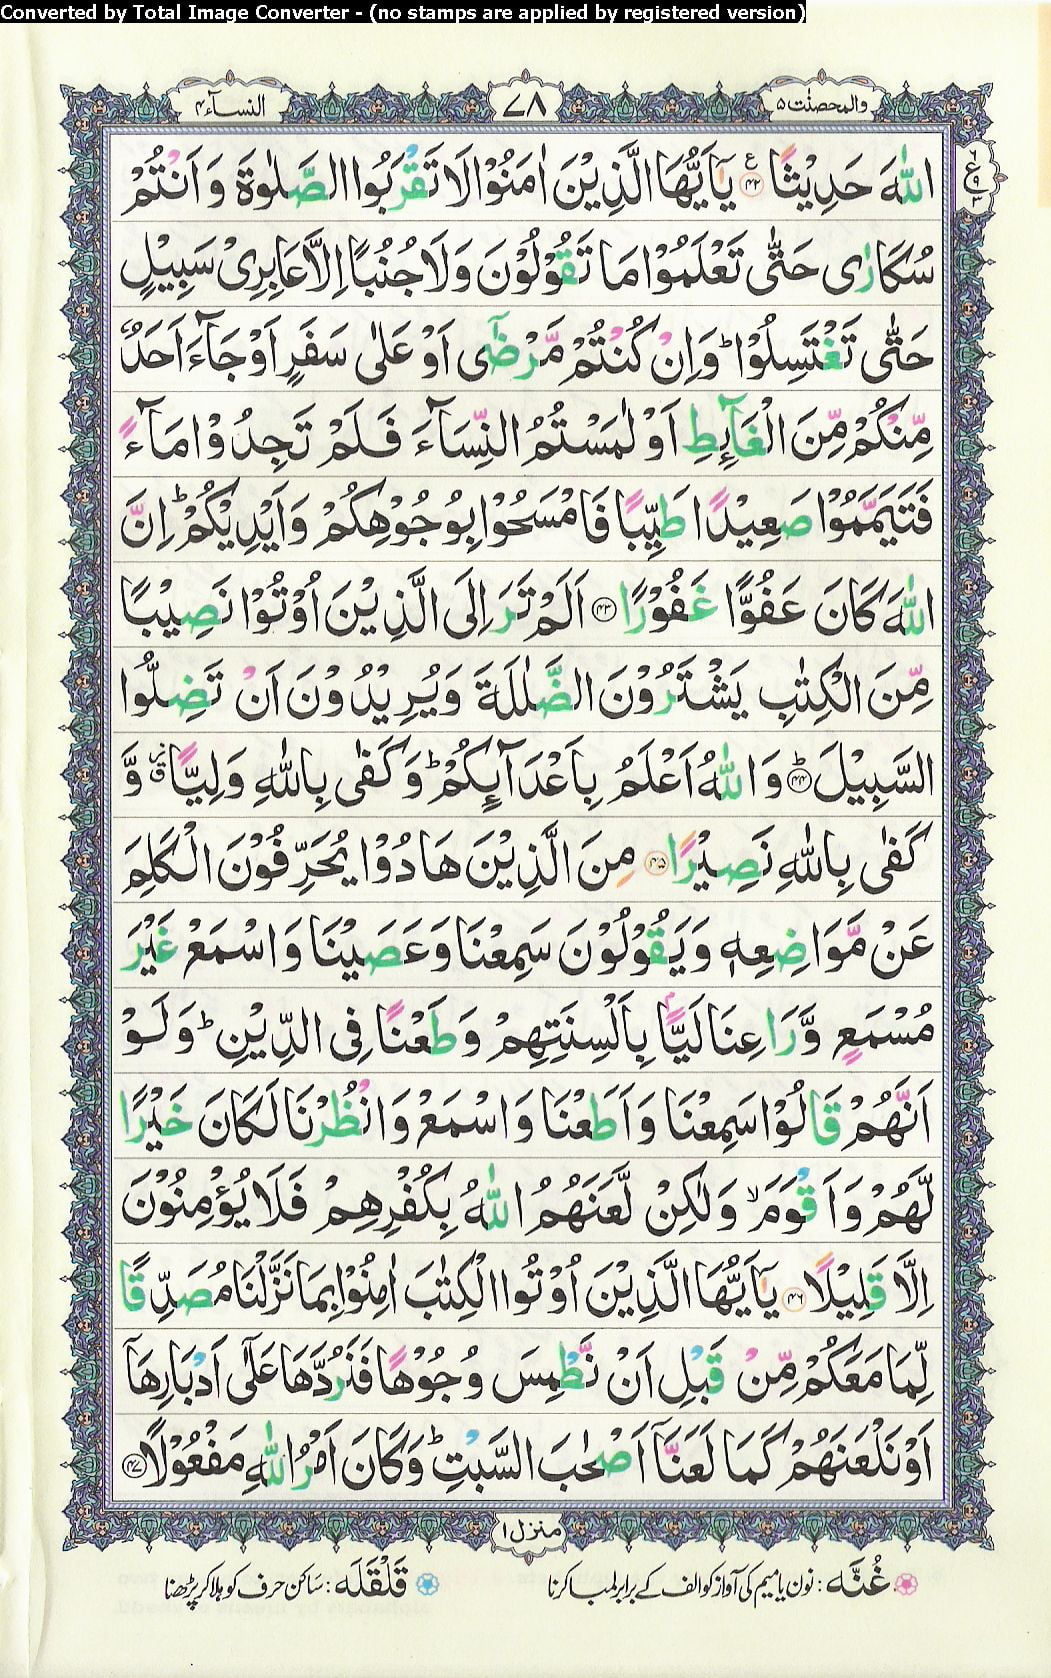 Converted by Total Image Converter - (no stamps are applied by registered version)
والمحصنٰت ۵
۷۸
النسآء ۴
ع ۹
اللّٰهَ حَدِيْثًا ۟﴿۴۲﴾ يٰۤاَيُّهَا الَّذِيْنَ اٰمَنُوْا لَا تَقْرَبُوا الصَّلٰوةَ وَ اَنْتُمْ
سُكَارٰى حَتّٰى تَعْلَمُوْا مَا تَقُوْلُوْنَ وَ لَا جُنُبًا اِلَّا عَابِرِىْ سَبِيْلٍ
حَتّٰى تَغْتَسِلُوْا ؕ وَ اِنْ كُنْتُمْ مَّرْضٰۤى اَوْ عَلٰى سَفَرٍ اَوْ جَآءَ اَحَدٌ
مِّنْكُمْ مِّنَ الْغَآىِٕطِ اَوْ لٰمَسْتُمُ النِّسَآءَ فَلَمْ تَجِدُوْا مَآءً
فَتَيَمَّمُوْا صَعِيْدًا طَيِّبًا فَامْسَحُوْا بِوُجُوْهِكُمْ وَ اَيْدِيْكُمْ ؕ اِنَّ
اللّٰهَ كَانَ عَفُوًّا غَفُوْرًا ﴿۴۳﴾ اَلَمْ تَرَ اِلَى الَّذِيْنَ اُوْتُوْا نَصِيْبًا
مِّنَ الْكِتٰبِ يَشْتَرُوْنَ الضَّلٰلَةَ وَ يُرِيْدُوْنَ اَنْ تَضِلُّوا
السَّبِيْلَ ؕ﴿۴۴﴾ وَ اللّٰهُ اَعْلَمُ بِاَعْدَآىِٕكُمْ ؕ وَ كَفٰى بِاللّٰهِ وَلِيًّا وَّ
كَفٰى بِاللّٰهِ نَصِيْرًا ﴿۴۵﴾ مِنَ الَّذِيْنَ هَادُوْا يُحَرِّفُوْنَ الْكَلِمَ
عَنْ مَّوَاضِعِهٖ وَ يَقُوْلُوْنَ سَمِعْنَا وَ عَصَيْنَا وَ اسْمَعْ غَيْرَ
مُسْمَعٍ وَّ رَاعِنَا لَيًّۢا بِاَلْسِنَتِهِمْ وَ طَعْنًا فِى الدِّيْنِ ؕ وَ لَوْ
اَنَّهُمْ قَالُوْا سَمِعْنَا وَ اَطَعْنَا وَ اسْمَعْ وَ انْظُرْنَا لَكَانَ خَيْرًا
لَّهُمْ وَ اَقْوَمَ ۙ وَ لٰكِنْ لَّعَنَهُمُ اللّٰهُ بِكُفْرِهِمْ فَلَا يُؤْمِنُوْنَ
اِلَّا قَلِيْلًا ﴿۴۶﴾ يٰۤاَيُّهَا الَّذِيْنَ اُوْتُوا الْكِتٰبَ اٰمِنُوْا بِمَا نَزَّلْنَا مُصَدِّقًا
لِّمَا مَعَكُمْ مِّنْ قَبْلِ اَنْ نَّطْمِسَ وُجُوْهًا فَنَرُدَّهَا عَلٰۤى اَدْبَارِهَاۤ
اَوْ نَلْعَنَهُمْ كَمَا لَعَنَّاۤ اَصْحٰبَ السَّبْتِ ؕ وَ كَانَ اَمْرُ اللّٰهِ مَفْعُوْلًا ﴿۴۷﴾
منزل ۱
غُنَّه : نون یا میم کی آواز کو الف کے برابر لمبا کرنا قَلْقَلَه : ساکن حرف کو ہلا کر پڑھنا